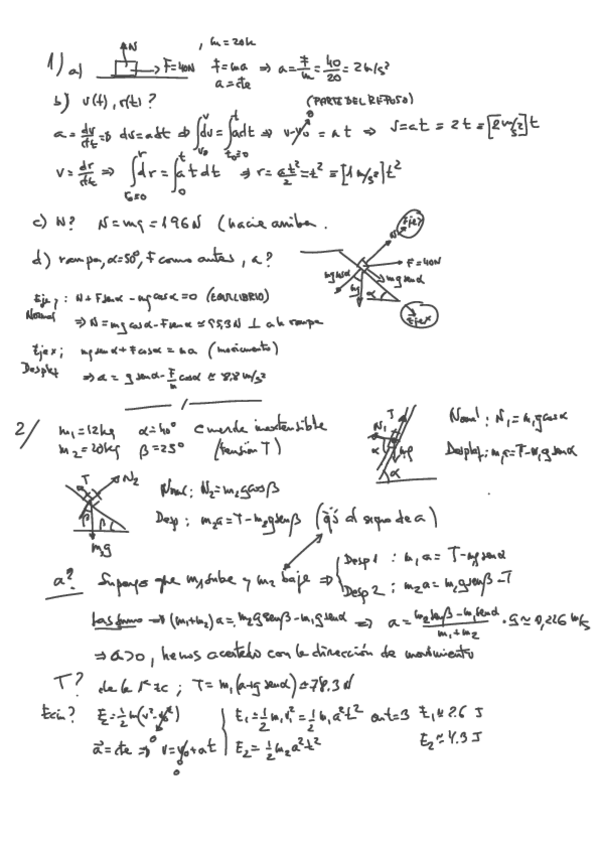 1) a) N , m = 20k
F=40N F=ma ⇒ a = F/m = 40/20 = 2m/s²
a=cte
b) v(t), r(t)? (PARTE DEL REPOSO)
a = dv/dt ⇒ dv=adt ⇒ ∫dv = ∫adt ⇒ v-v₀ = at ⇒ v=at = 2t = [2m/s²]t
v = dr/dt ⇒ ∫dr = ∫at dt ⇒ r = at²/2 = t² = [1m/s²]t²
c) N? N = mg = 196N (hacia arriba.
d) rampa, α=50°, F como antes, a?
N Eje y
F=40N
mg cosα mg mg senα α
Eje x
Eje y: N + F senα - mg cosα = 0 (EQUILIBRIO)
Normal ⇒ N = mg cosα - F senα ≈ 95,3N ⊥ a la rampa
Eje x: mg senα + F cosα = ma (movimiento)
Desplaz ⇒ a = g senα - F/m cosα ≈ 8.8 m/s²
2/ m₁=12kg α=40° cuerda inextensible
m₂=20kg β=25° (tensión T)
T N₁ α mg α
Normal: N₁ = m₁g cosα
Desplaz: m₁a = T - m₁g senα
T N₂ β β m₂g
Normal: N₂ = m₂g cosβ
Desp: m₂a = T - m₂g senβ (ojo al signo de a)
a? Supongo que m₁ sube y m₂ baje ⇒ Desp 1: m₁a = T - m₁g senα
Desp 2: m₂a = m₂g senβ - T
Las sumo ⇒ (m₁+m₂)a = m₂g senβ - m₁g senα ⇒ a = (m₂ senβ - m₁ senα)/(m₁+m₂) · g ≈ 0,226 m/s
⇒ a>0, hemos acertado con la dirección de movimiento
T? de la 1ª ec; T = m₁(a+g senα) ≈ 78.3 N
Ecin? E = ½m(v²-v₀²) E₁ = ½m₁v₁² = ½m₁a²t² en t=3 E₁ ≈ 2.6 J
a = cte ⇒ v = v₀ + at E₂ = ½m₂a²t² E₂ ≈ 4.3 J